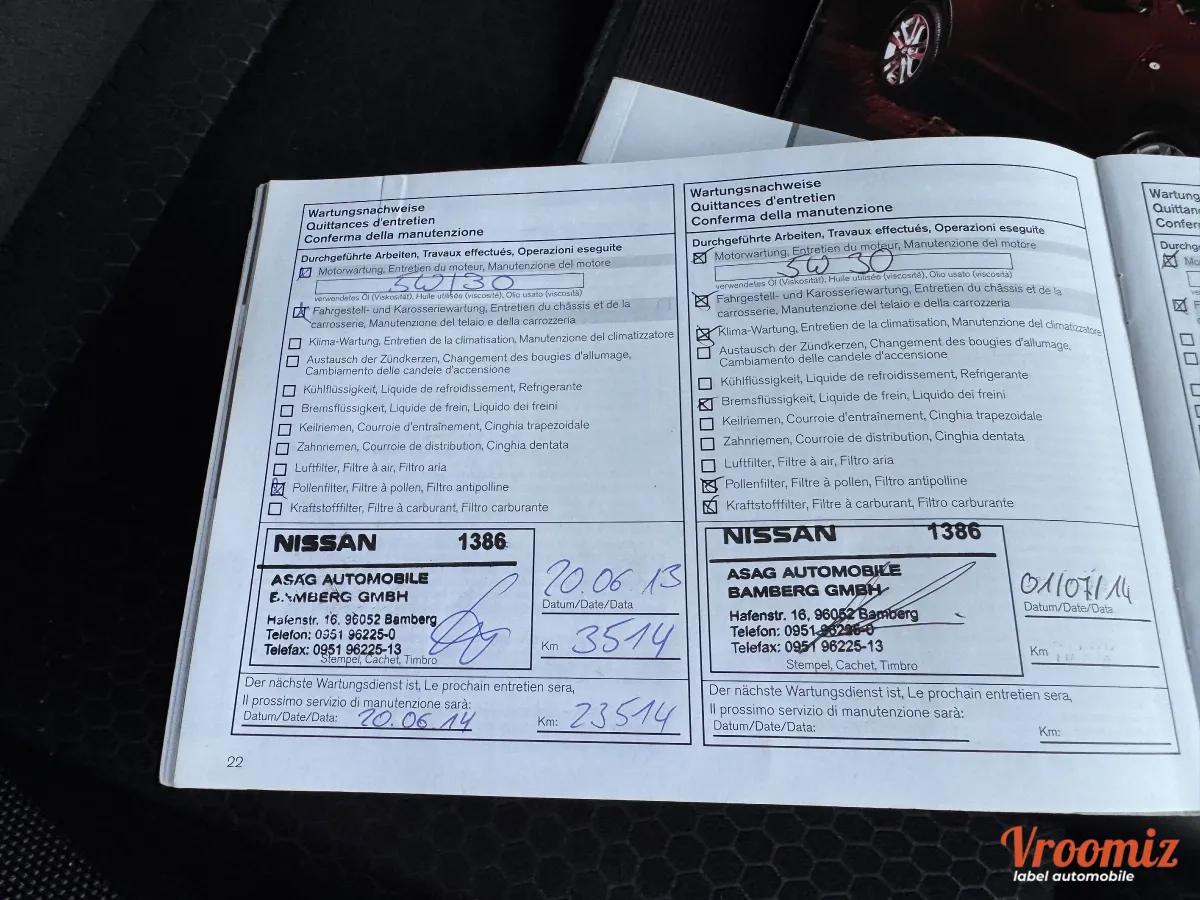 Wartungsnachweise
Quittances d'entretien
Conferma della manutenzione
Durchgeführte Arbeiten, Travaux effectués, Operazioni eseguite
Motorwartung, Entretien du moteur, Manutenzione del motore
5W/30
verwendetes Öl (Viskosität), Huile utilisée (viscosité), Olio usato (viscosità)
Fahrgestell- und Karosseriewartung, Entretien du châssis et de la
carrosserie, Manutenzione del telaio e della carrozzeria
Klima-Wartung, Entretien de la climatisation, Manutenzione del climatizzatore
Austausch der Zündkerzen, Changement des bougies d'allumage,
Cambiamento delle candele d'accensione
Kühlflüssigkeit, Liquide de refroidissement, Refrigerante
Bremsflüssigkeit, Liquide de frein, Liquido dei freini
Keilriemen, Courroie d'entraînement, Cinghia trapezoidale
Zahnriemen, Courroie de distribution, Cinghia dentata
Luftfilter, Filtre à air, Filtro aria
Pollenfilter, Filtre à pollen, Filtro antipolline
Kraftstofffilter, Filtre à carburant, Filtro carburante
NISSAN 1386
ASAG AUTOMOBILE
BAMBERG GMBH
Hafenstr. 16, 96052 Bamberg
Telefon: 0951 96225-0
Telefax: 0951 96225-13
Stempel, Cachet, Timbro
20.06.13
Datum/Date/Data
Km 3514
Der nächste Wartungsdienst ist, Le prochain entretien sera,
Il prossimo servizio di manutenzione sarà:
Datum/Date/Data: 20.06.14 Km: 23514
22
Wartungsnachweise
Quittances d'entretien
Conferma della manutenzione
Durchgeführte Arbeiten, Travaux effectués, Operazioni eseguite
Motorwartung, Entretien du moteur, Manutenzione del motore
5W30
verwendetes Öl (Viskosität), Huile utilisée (viscosité), Olio usato (viscosità)
Fahrgestell- und Karosseriewartung, Entretien du châssis et de la
carrosserie, Manutenzione del telaio e della carrozzeria
Klima-Wartung, Entretien de la climatisation, Manutenzione del climatizzatore
Austausch der Zündkerzen, Changement des bougies d'allumage,
Cambiamento delle candele d'accensione
Kühlflüssigkeit, Liquide de refroidissement, Refrigerante
Bremsflüssigkeit, Liquide de frein, Liquido dei freini
Keilriemen, Courroie d'entraînement, Cinghia trapezoidale
Zahnriemen, Courroie de distribution, Cinghia dentata
Luftfilter, Filtre à air, Filtro aria
Pollenfilter, Filtre à pollen, Filtro antipolline
Kraftstofffilter, Filtre à carburant, Filtro carburante
NISSAN 1386
ASAG AUTOMOBILE
BAMBERG GMBH
Hafenstr. 16, 96052 Bamberg
Telefon: 0951 96225-0
Telefax: 0951 96225-13
Stempel, Cachet, Timbro
01/07/14
Datum/Date/Data
Km
Der nächste Wartungsdienst ist, Le prochain entretien sera,
Il prossimo servizio di manutenzione sarà:
Datum/Date/Data: Km:
Vroomiz
label automobile